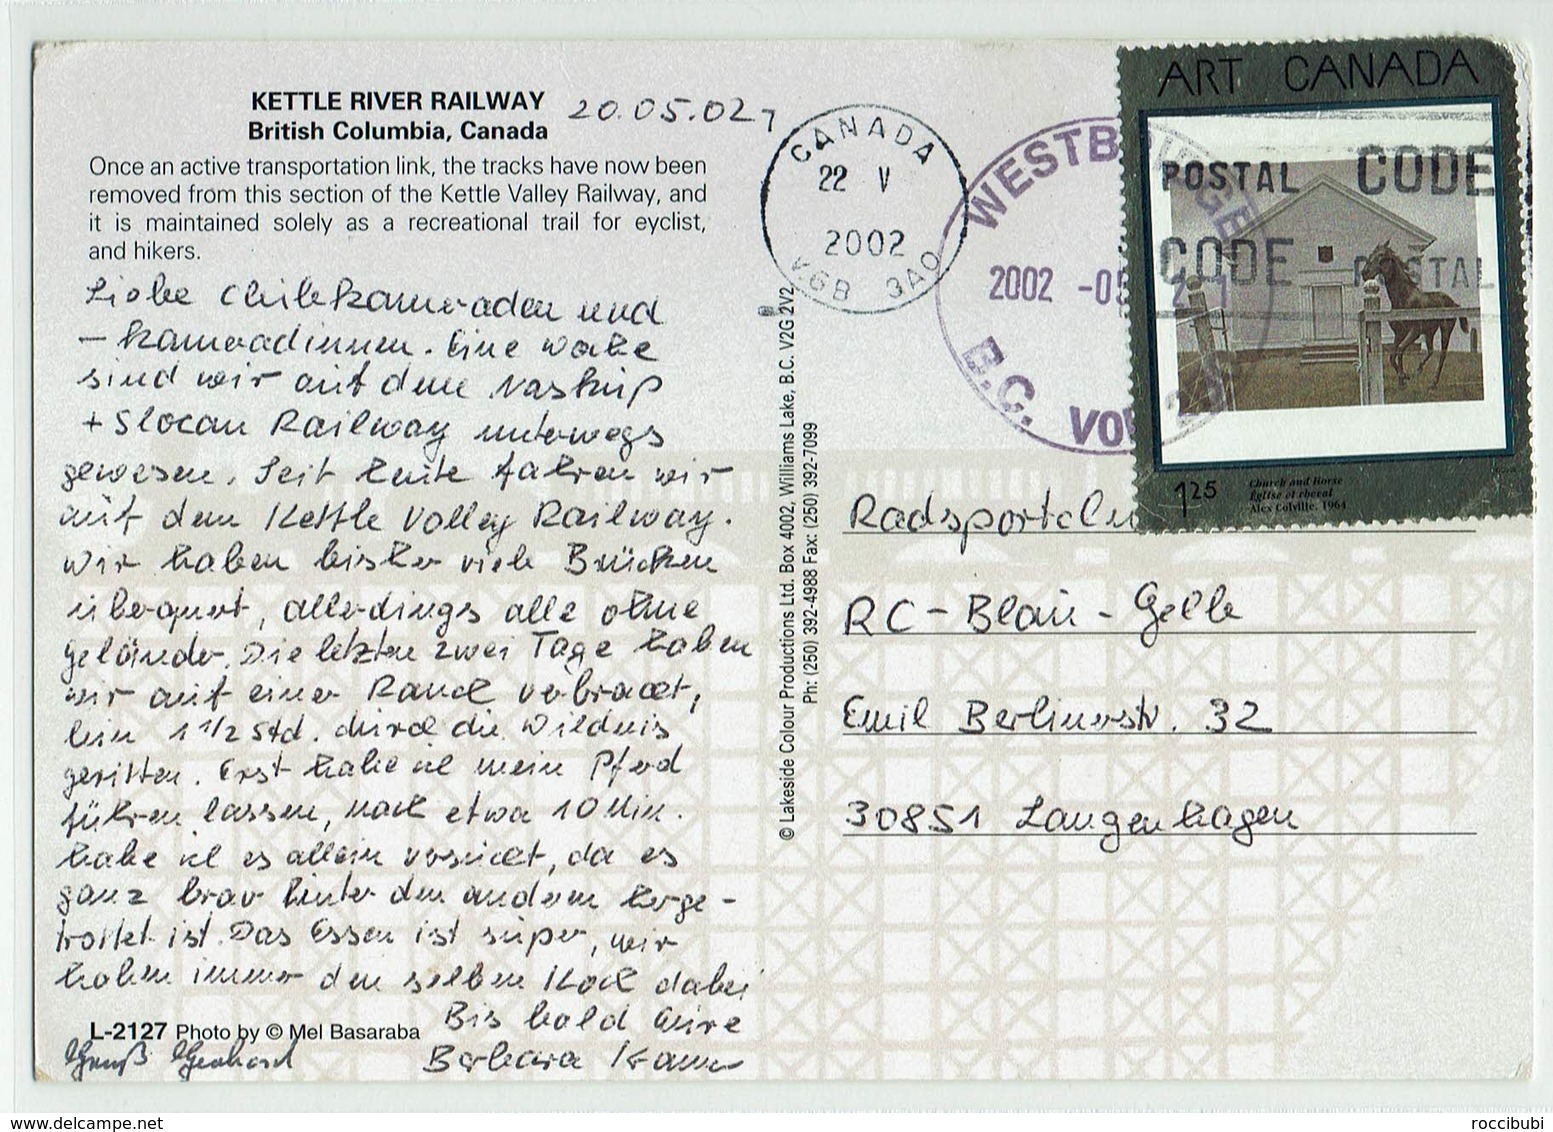 KETTLE RIVER RAILWAY
British Columbia, Canada
20.05.02
Once an active transportation link, the tracks have now been
removed from this section of the Kettle Valley Railway, and
it is maintained solely as a recreational trail for eyclist,
and hikers.
Liebe Clubkameraden und
- kameradinnen. Eine Woche
sind wir auf dem Naskup
+ Slocan Railway unterwegs
gewesen. Seit heute fahren wir
auf dem Kettle Valley Railway.
Wir haben bisher viele Brücken
überquert, allerdings alle ohne
Geländer. Die letzten zwei Tage haben
wir auf einer Ranch verbracht,
bin 1 1/2 Std. durch die Wildnis
geritten. Erst habe ich mein Pferd
führen lassen, nach etwa 10 Min.
habe ich es allein versucht, da es
ganz brav hinter den andern herge-
trottet ist. Das Essen ist super, wir
haben immer den selben Koch dabei
Bis bald Eure
Barbara
L-2127 Photo by © Mel Basaraba
Gruß Gerhard
© Lakeside Colour Productions Ltd. Box 4002, Williams Lake, B.C. V2G 2V2
Ph: (250) 392-4988 Fax: (250) 392-7099
CANADA
22 V
2002
V6B 3A0
WESTBRIDGE
2002 -05
B.C.
ART CANADA
POSTAL CODE
CODE POSTAL
125
Church and Horse
Église et cheval
Alex Colville, 1964
Radsportclu
RC-Blau-Gelb
Emil Berlinerstr. 32
30851 Langenhagen
www.delcampe.net
roccibubi